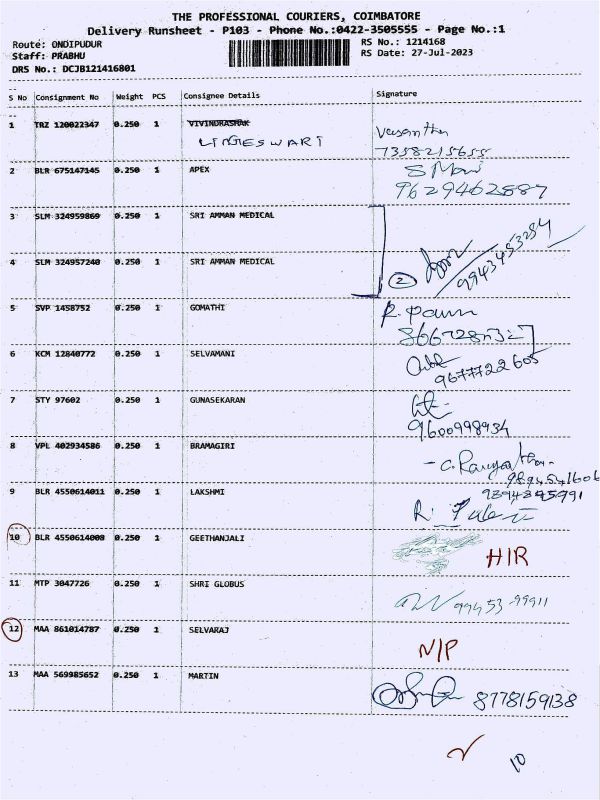 THE PROFESSIONAL COURIERS, COIMBATORE
Delivery Runsheet - P103 - Phone No.:0422-3505555 - Page No.:1
Route: ONDIPUDUR RS No.: 1214168
Staff: PRABHU RS Date: 27-Jul-2023
DRS No.: DCJB121416801
S No Consignment No Weight PCS Consignee Details Signature
1 TRZ 120022347 0.250 1
LINGESWARI Vasantha
7358215655
2 BLR 675147145 0.250 1 APEX S Mani
9629462887
3 SLM 324959869 0.250 1 SRI AMMAN MEDICAL
4 SLM 324957240 0.250 1 SRI AMMAN MEDICAL 2 9943453284
5 SVP 1458752 0.250 1 GOMATHI
6 KCM 12840772 0.250 1 SELVAMANI
9677722605
7 STY 97602 0.250 1 GUNASEKARAN
9600998934
8 VPL 402934586 0.250 1 BRAMAGIRI
9894541606
9 BLR 4550614011 0.250 1 LAKSHMI
10 BLR 4550614008 0.250 1 GEETHANJALI HIR
11 MTP 3047726 0.250 1 SHRI GLOBUS 99453-99911
12 MAA 861014787 0.250 1 SELVARAJ N/P
13 MAA 569985652 0.250 1 MARTIN 8778159138
10